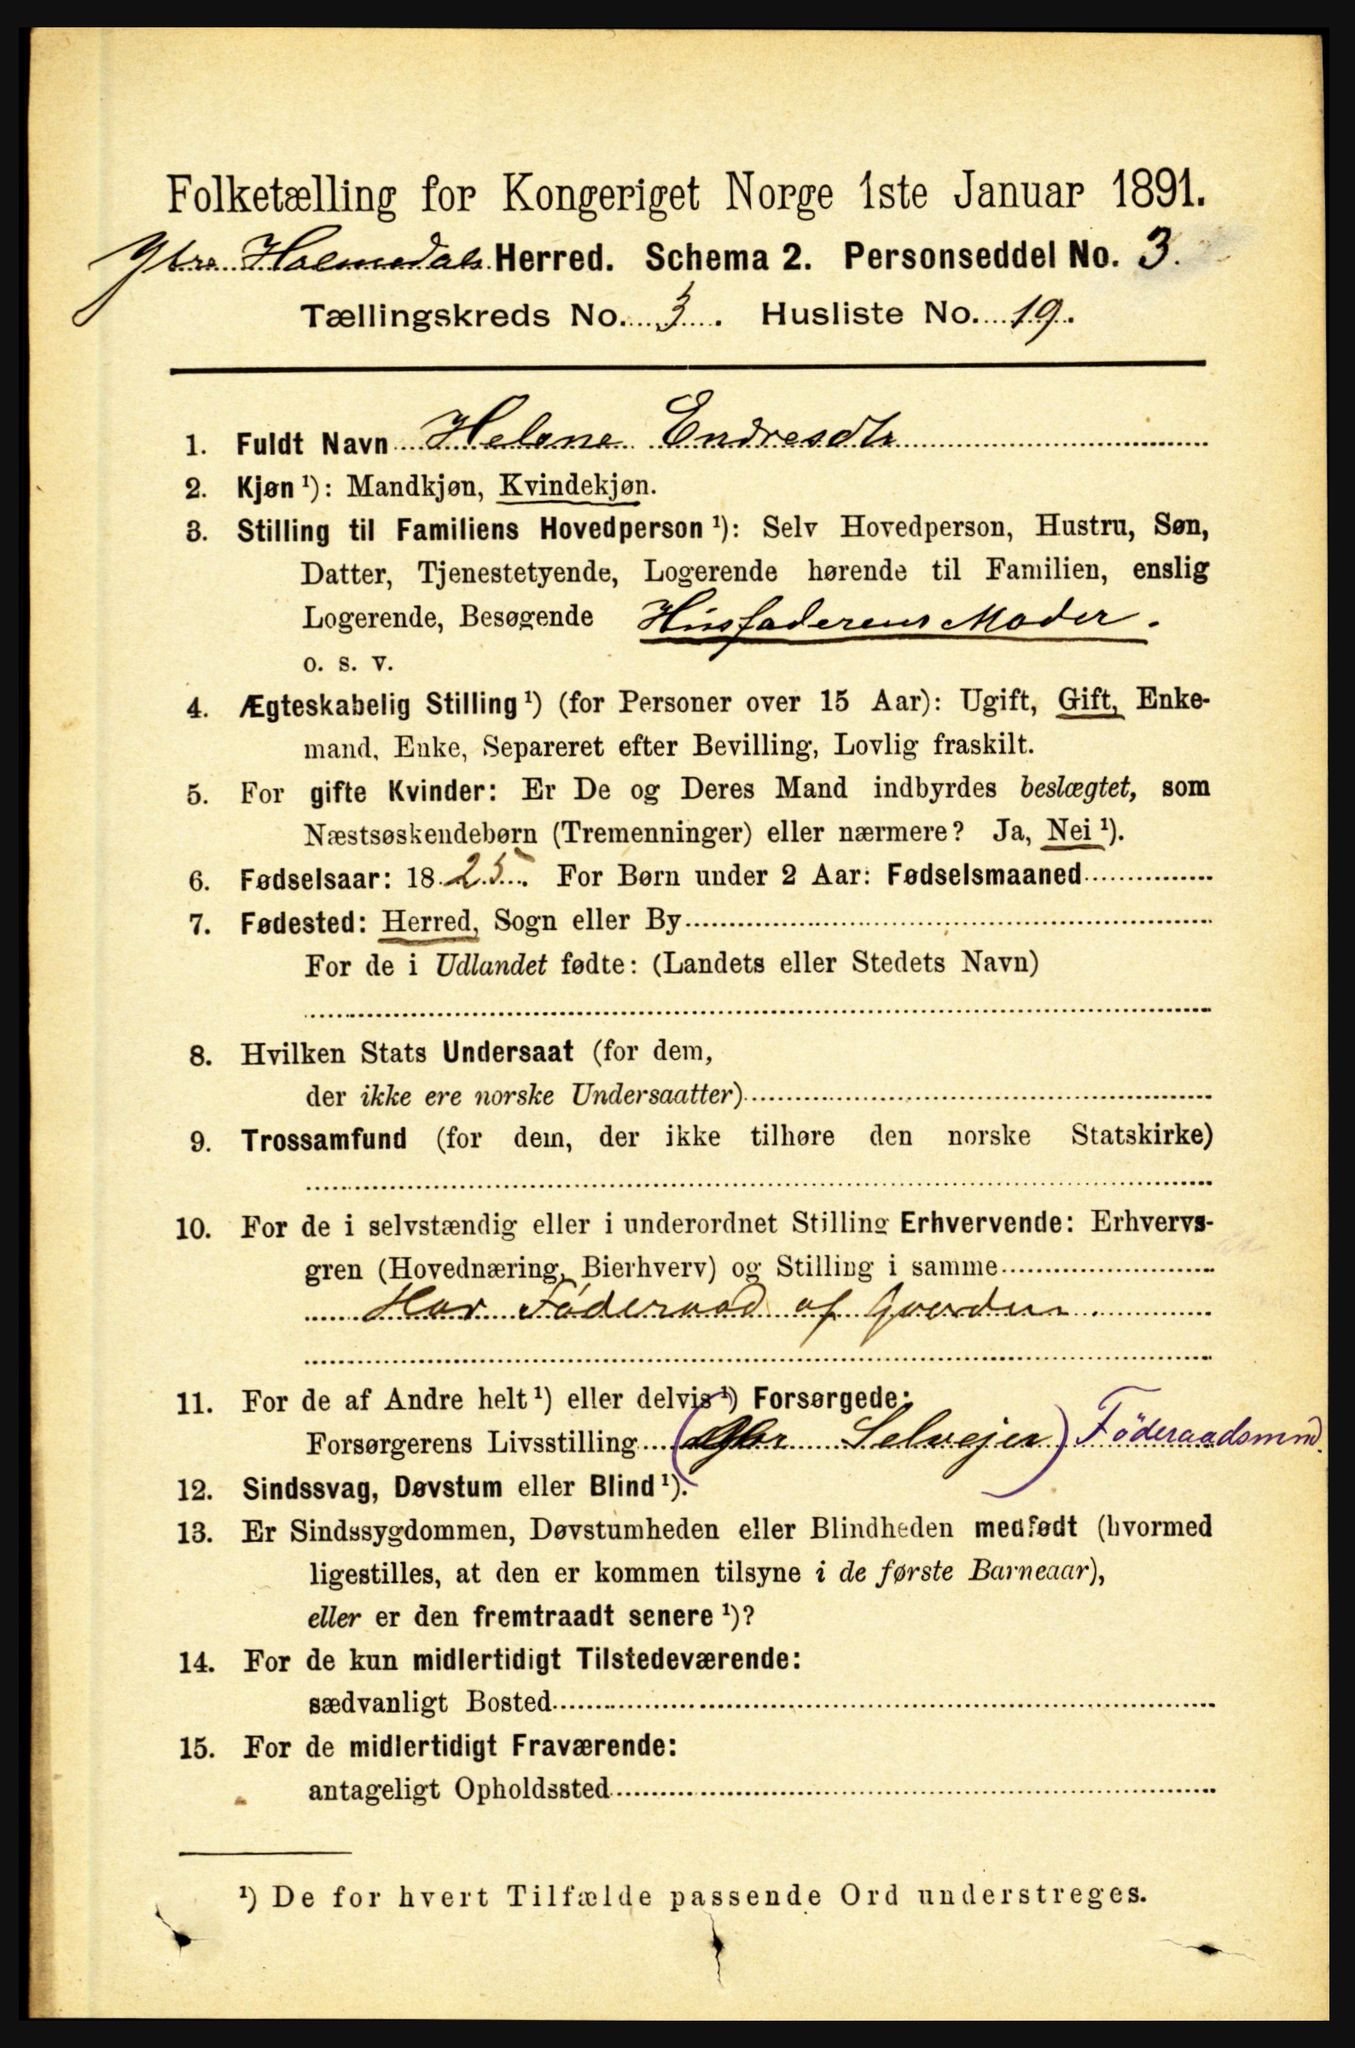 Folketælling for Kongeriget Norge 1ste Januar 1891.
Ytre Holmedals Herred. Schema 2. Personseddel No. 3.
Tællingskreds No. 3. Husliste No. 19.
1. Fuldt Navn Helene Endresdtr
2. Kjøn ¹): Mandkjøn, Kvindekjøn.
3. Stilling til Familiens Hovedperson ¹): Selv Hovedperson, Hustru, Søn,
Datter, Tjenestetyende, Logerende hørende til Familien, enslig
Logerende, Besøgende Husfaderens Moder.
o. s. v.
4. Ægteskabelig Stilling ¹) (for Personer over 15 Aar): Ugift, Gift, Enke-
mand, Enke, Separeret efter Bevilling, Lovlig fraskilt.
5. For gifte Kvinder: Er De og Deres Mand indbyrdes beslægtet, som
Næstsøskendebørn (Tremenninger) eller nærmere? Ja, Nei ¹).
6. Fødselsaar: 1825. For Børn under 2 Aar: Fødselsmaaned
7. Fødested: Herred, Sogn eller By
For de i Udlandet fødte: (Landets eller Stedets Navn)
8. Hvilken Stats Undersaat (for dem,
der ikke ere norske Undersaatter)
9. Trossamfund (for dem, der ikke tilhøre den norske Statskirke)
10. For de i selvstændig eller i underordnet Stilling Erhvervende: Erhvervs-
gren (Hovednæring, Bierhverv) og Stilling i samme
Har Föderaad af Gaarden
11. For de af Andre helt ¹) eller delvis ¹) Forsørgede:
Forsørgerens Livsstilling ( Selvejer) Föderaadsmnd.
12. Sindssvag, Døvstum eller Blind ¹).
13. Er Sindssygdommen, Døvstumheden eller Blindheden medfødt (hvormed
ligestilles, at den er kommen tilsyne i de første Barneaar),
eller er den fremtraadt senere ¹)?
14. For de kun midlertidigt Tilstedeværende:
sædvanligt Bosted
15. For de midlertidigt Fraværende:
antageligt Opholdssted
¹) De for hvert Tilfælde passende Ord understreges.